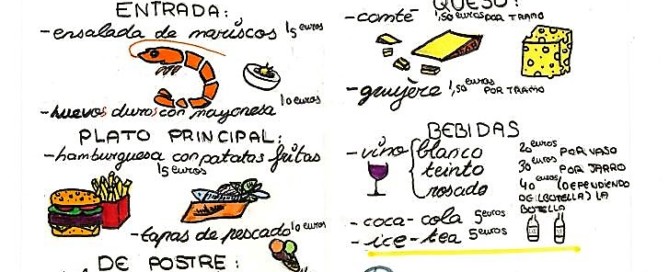 ENTRADA:
-ensalada de mariscos 15 euros
-huevos duros con mayonesa 10 euros
PLATO PRINCIPAL:
-hamburguesa con patatas fritas
15 euros
-tapas de pescado 10 euros
DE POSTRE:
QUESO:
-comté 1,50 euros POR TRAMO
-grujère 1,50 euros POR TRAMO
BEBIDAS
-vino blanco 20 euros POR VASO
tinto 30 euros POR JARRO
rosado 40 euros (DEPENDIENDO
DE (BOTELLA) LA
BOTELLA
-coca-cola 5 euros
-ice-tea 5 euros